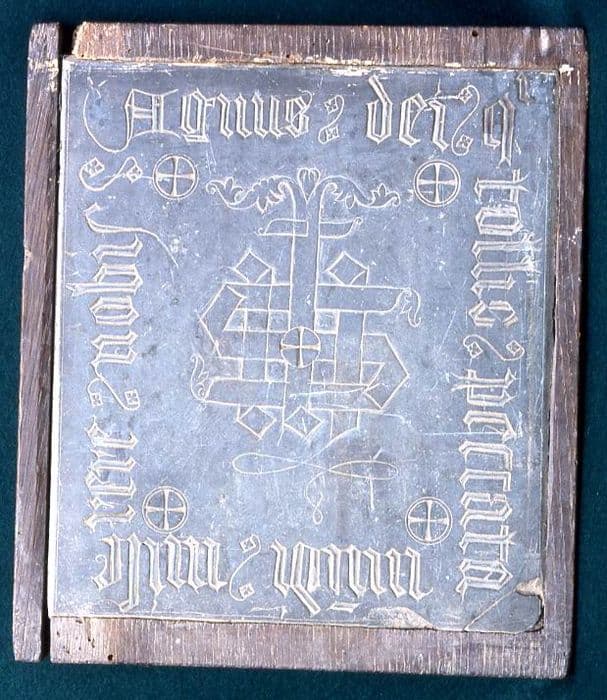 Agnus dei qͥ
tollis peccata
mūdi mise
rere nobis